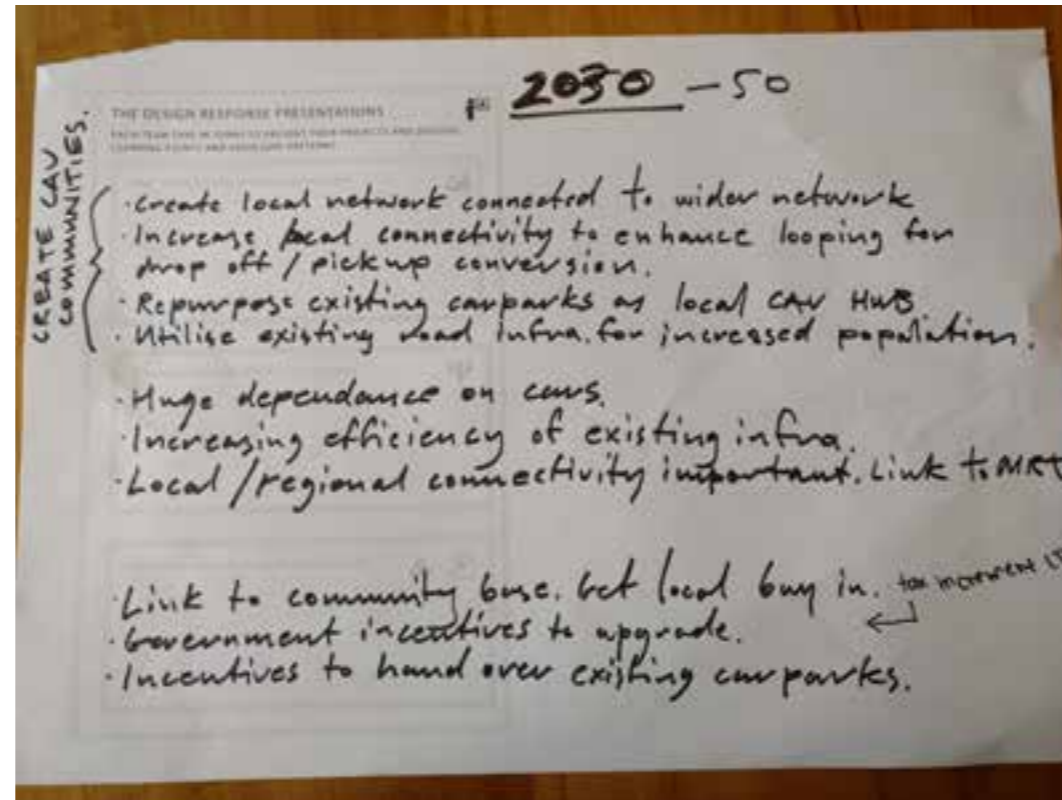 2030 - 50
THE DESIGN RESPONSE PRESENTATIONS
CREATE CAV
COMMUNITIES.
· Create local network connected to wider network
· Increase local connectivity to enhance looping for
drop off / pickup conversion.
· Repurpose existing carparks as local CAV HUB
· Utilise existing road infra. for increased population.
· Huge dependance on cars.
· Increasing efficiency of existing infra.
· Local / regional connectivity important. Link to MRT
· Link to community base. Get local buy in. tax increment
· Government incentives to upgrade.
· Incentives to hand over existing carparks.